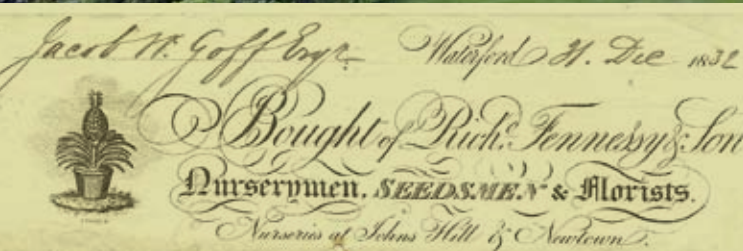 Jacob W. Goff Esqr. Waterford 31. Dec 1832
Bought of Richd. Fennessy & Son
Nurserymen, SEEDSMEN & Florists.
Nurseries at Johns Hill & Newtown.